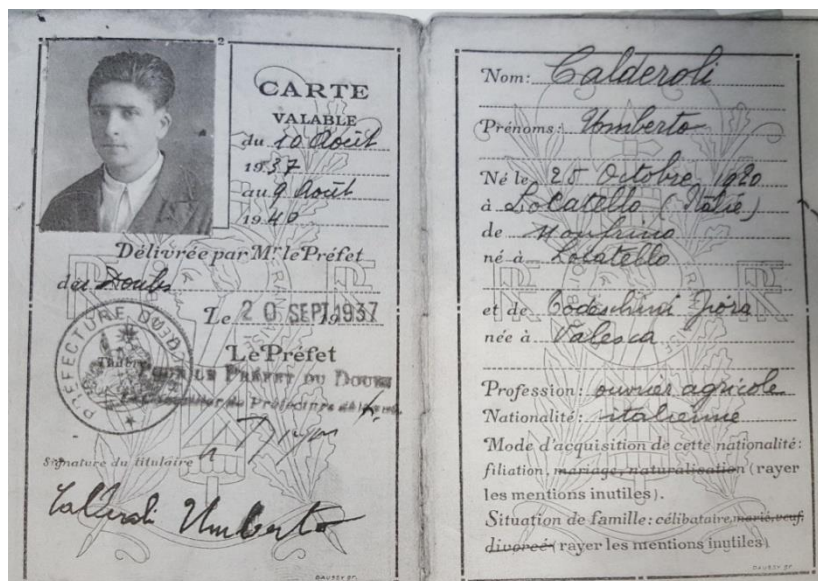 2
CARTE
VALABLE
du 10 Août
1937
au 9 Août
1940
Délivrée par Mr. le Préfet
du Doubs
Le 20 SEPT 1937
Le Préfet
PREFECTURE DU DOUBS
POUR LE PRÉFET DU DOUBS
Signature du titulaire
Calderoli Umberto
DAUSSY GR.
Nom: Calderoli
Prénoms: Umberto
Né le 25 Octobre 1920
à Locatello (Italie)
de
né à Locatello
et de Todeschini
née à Valesca
Profession: ouvrier agricole
Nationalité: italienne
Mode d'acquisition de cette nationalité:
filiation, mariage, naturalisation (rayer
les mentions inutiles).
Situation de famille: célibataire, marié, veuf,
divorcé (rayer les mentions inutiles)
DAUSSY GR.